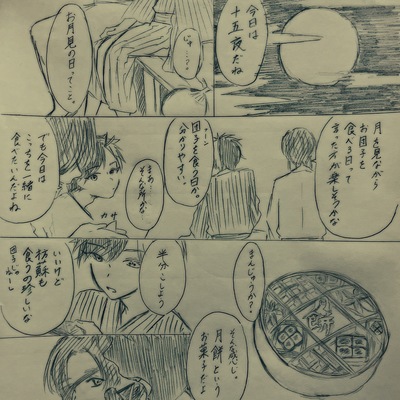 今日は
十五夜だね
じゅ…？
お月見の日ってこと。
月を見ながら
お団子を
食べる日って
言った方が楽しそうかな
団子を食う日か。
分かりやすい。
まあ…
そんな所かな
カサ
でも今日は
こっちを一緒に
食べたいんだよね
まんじゅうか？
月餅
そんな感じ。
月餅という
お菓子だよ
半分こしよう
いいけど
枋蘇も
食うの珍しいな